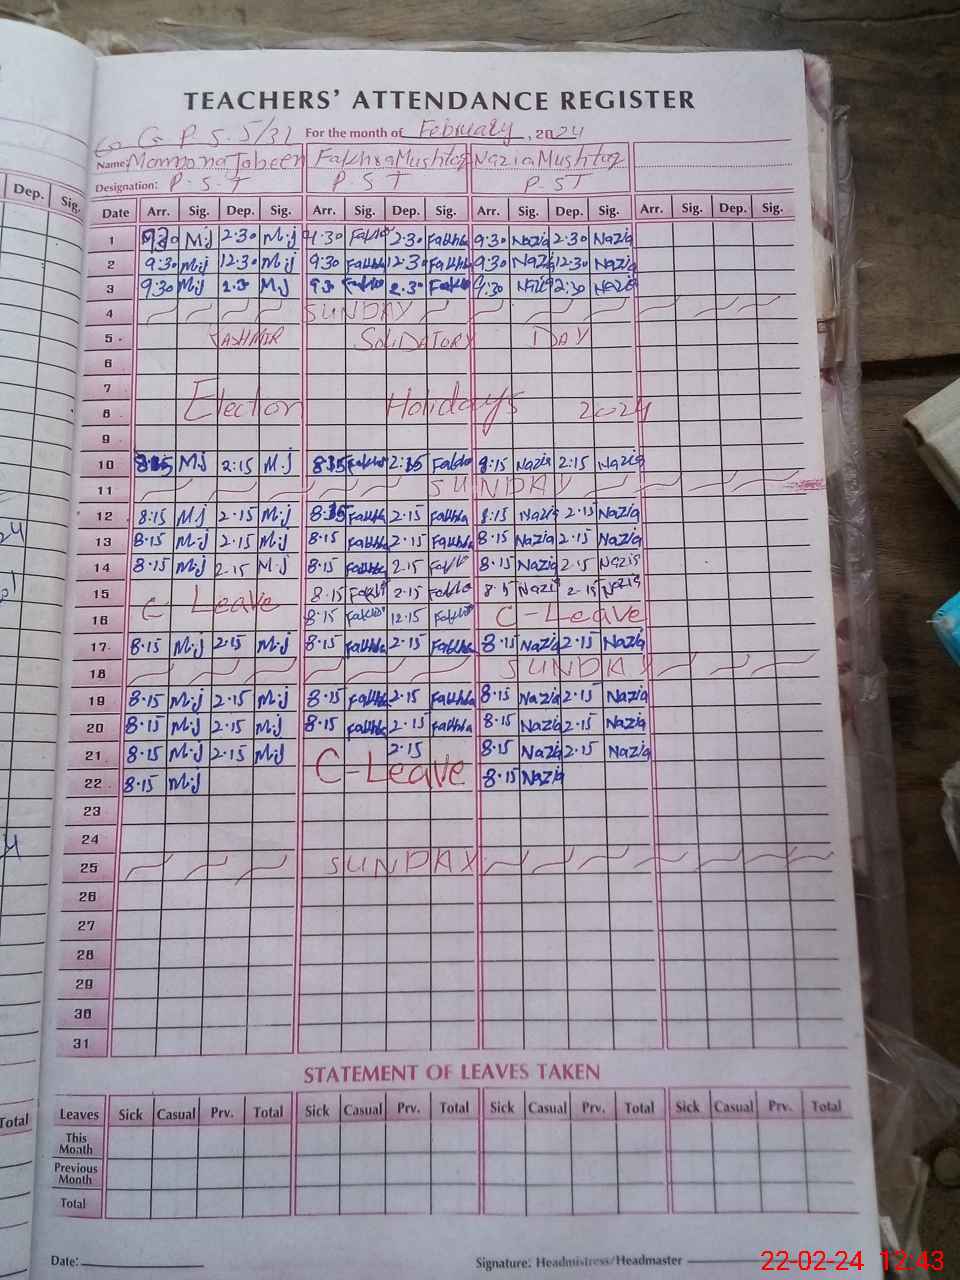 TEACHERS' ATTENDANCE REGISTER
G. P. S. 5/3L For the month of February, 2024
Name: Mamoona Jabeen Fakhra Mushtaq Nazia Mushtaq
Designation: P.S.T P.S.T P.ST
Dep. Sig. Date Arr. Sig. Dep. Sig. Arr. Sig. Dep. Sig. Arr. Sig. Dep. Sig. Arr. Sig. Dep. Sig.
1 9:30 M.j 2:30 M.j 9:30 Fakhra 2:30 Fakhra 9:30 Nazia 2:30 Nazia
2 9:30 M.j 12:30 M.j 9:30 Fakhra 12:30 Fakhra 9:30 Nazia 12:30 Nazia
3 9:30 M.j 2:30 M.j 9:30 Fakhra 2:30 Fakhra 9:30 Nazia 2:30 Nazia
4 SUNDAY
5 KASHMIR SOLIDATORY DAY
6
7
8 Election Holidays 2024
9
10 8:15 M.j 2:15 M.j 8:15 Fakhra 2:15 Fakhra 8:15 Nazia 2:15 Nazia
11 SUNDAY
12 8:15 M.j 2.15 M.j 8:15 Fakhra 2.15 Fakhra 8:15 Nazia 2.15 Nazia
13 8.15 M.j 2.15 M.j 8.15 Fakhra 2.15 Fakhra 8.15 Nazia 2.15 Nazia
14 8.15 M.j 2.15 M.j 8.15 Fakhra 2.15 Fakhra 8.15 Nazia 2.15 Nazia
15 8.15 Fakhra 2.15 Fakhra 8.15 Nazia 2.15 Nazia
C Leave
16 8.15 Fakhra 12.15 Fakhra C-Leave
17 8.15 M.j 2.15 M.j 8.15 Fakhra 2.15 Fakhra 8.15 Nazia 2.15 Nazia
18 SUNDAY
19 8.15 M.j 2.15 M.j 8.15 Fakhra 2.15 Fakhra 8.15 Nazia 2.15 Nazia
20 8.15 M.j 2.15 M.j 8.15 Fakhra 2.15 Fakhra 8.15 Nazia 2.15 Nazia
21 8.15 M.j 2.15 M.j 2.15 8.15 Nazia 2.15 Nazia
C-Leave
22 8.15 M.j 8.15 Nazia
23
24
25 SUNDAY
26
27
28
29
30
31
STATEMENT OF LEAVES TAKEN
Leaves Sick Casual Prv. Total Sick Casual Prv. Total Sick Casual Prv. Total Sick Casual Prv. Total
Total
This Month
Previous Month
Total
Date: Signature: Headmistress/Headmaster
22-02-24 12:43